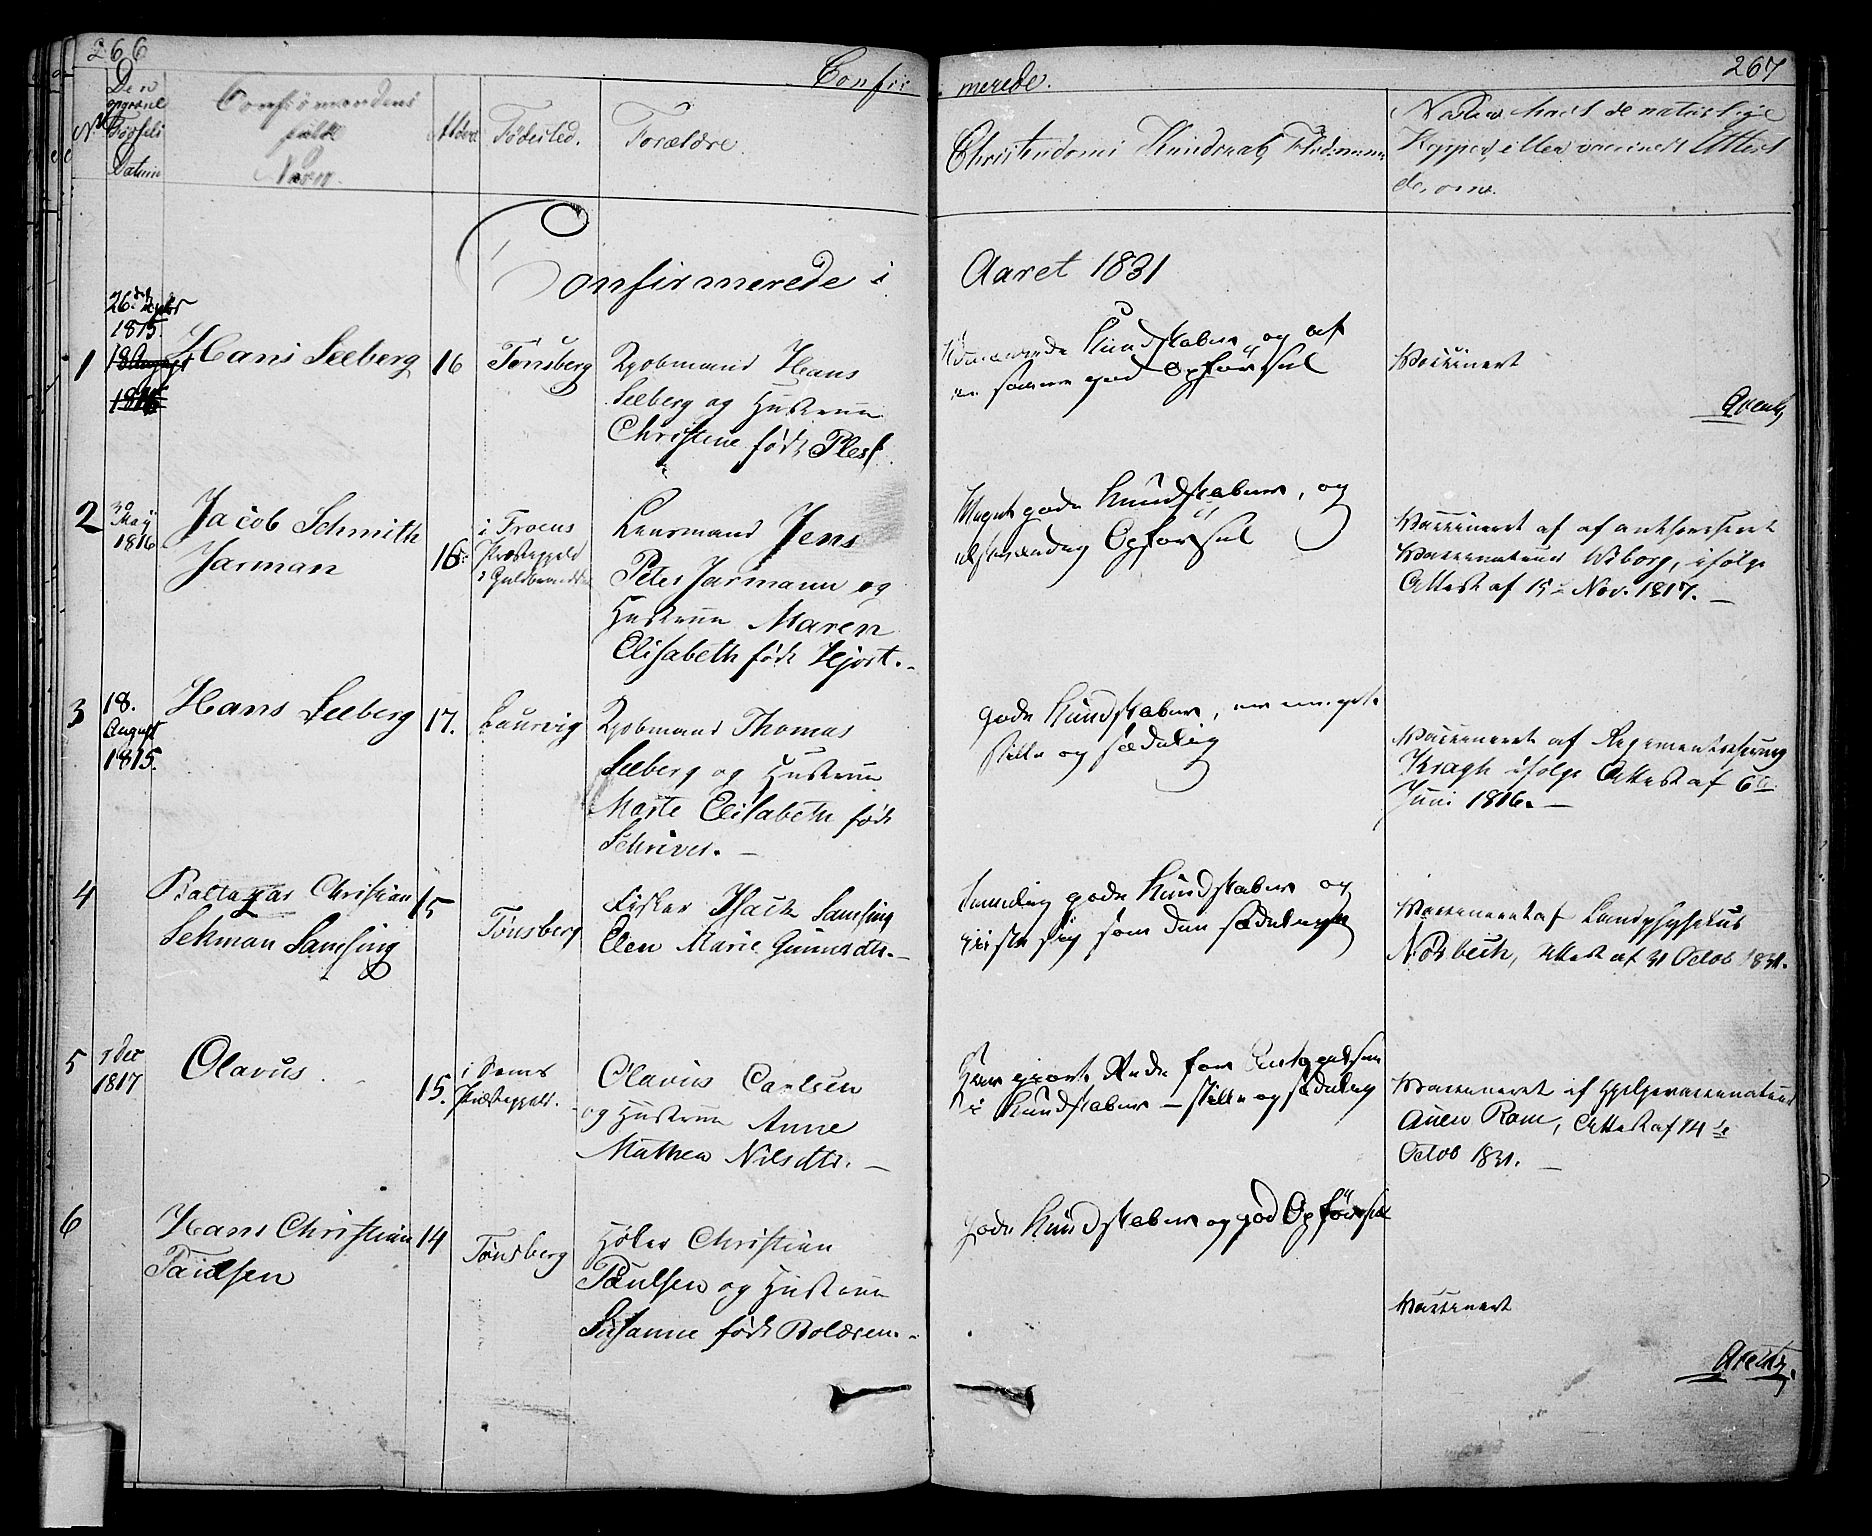 266
Confir
merede.
267
No
Den
opgivne
Fødsels
Datum
Confirmandens
fulde
Navn.
Alder
Fødested.
Forældre.
Christendoms Kundskab,
Naar havt de naturlige
Kopper, eller vaccineret Attest
derom.
Confirmerede i
Aaret 1831
26de
1815.
18 August
1815
1
Hans Seeberg
16
Tønsberg
Kjøbmand Hans
Seeberg og Hustrue
Christine født Plesf.
Kundskaber og af
samme god Opførsel
Vaccinert
2
30
May
1816
Jacob Schmith
Jarman
16.
i Froens
Præstegjeld
i Guldbrandsd
Lensmand Jens
Peter Jarmann og
Hustrue Maren
Elisabeth født Hjort.-
Meget gode Kundskaber, og
Opførsel
Vaccineret af
Wiborg, ifølge
Attest af 15 Nov. 1817. -
3
18.
August
1815.
Hans Seeberg
17.
Laurvig
Kjøbmand Thomas
Seeberg og Hustrue
Marte Elisabeth født
Schriver. -
gode Kundskaber, er meget
stille og sædelig
Vaccineret af Regimentschirurg
Kragh ifølge Attest af 6te
Juni 1816. -
4
Baltazar Christian
Sekman Samsing
15
Tønsberg
Fisker Isach Samsing
Elen Marie Gunnersdtr. -
Temmelig gode Kundskaber og
som den sædeligste
Vaccineret af Landphysicus
Norbech, Attest af 31 Octob 1831.
5
7 Dec
1817
Olavus
15.
i Sems
Præstegjeld.
Olavus Carlsen
og Hustrue Anne
Mathea Nilsdtr. -
Har gjort Rede for
i Kundskaber - stille og sædelig
Vaccineret af Hjelpevaccinateur
Auen Ram, Attest af 14de
Octob 1831. -
6
Hans Christian
Paulsen
14
Tønsberg
Høker Christian
Paulsen og Hustrue
Susanne født Bolæren.-
gode Kundskaber og god Opførsel
Vaccinert